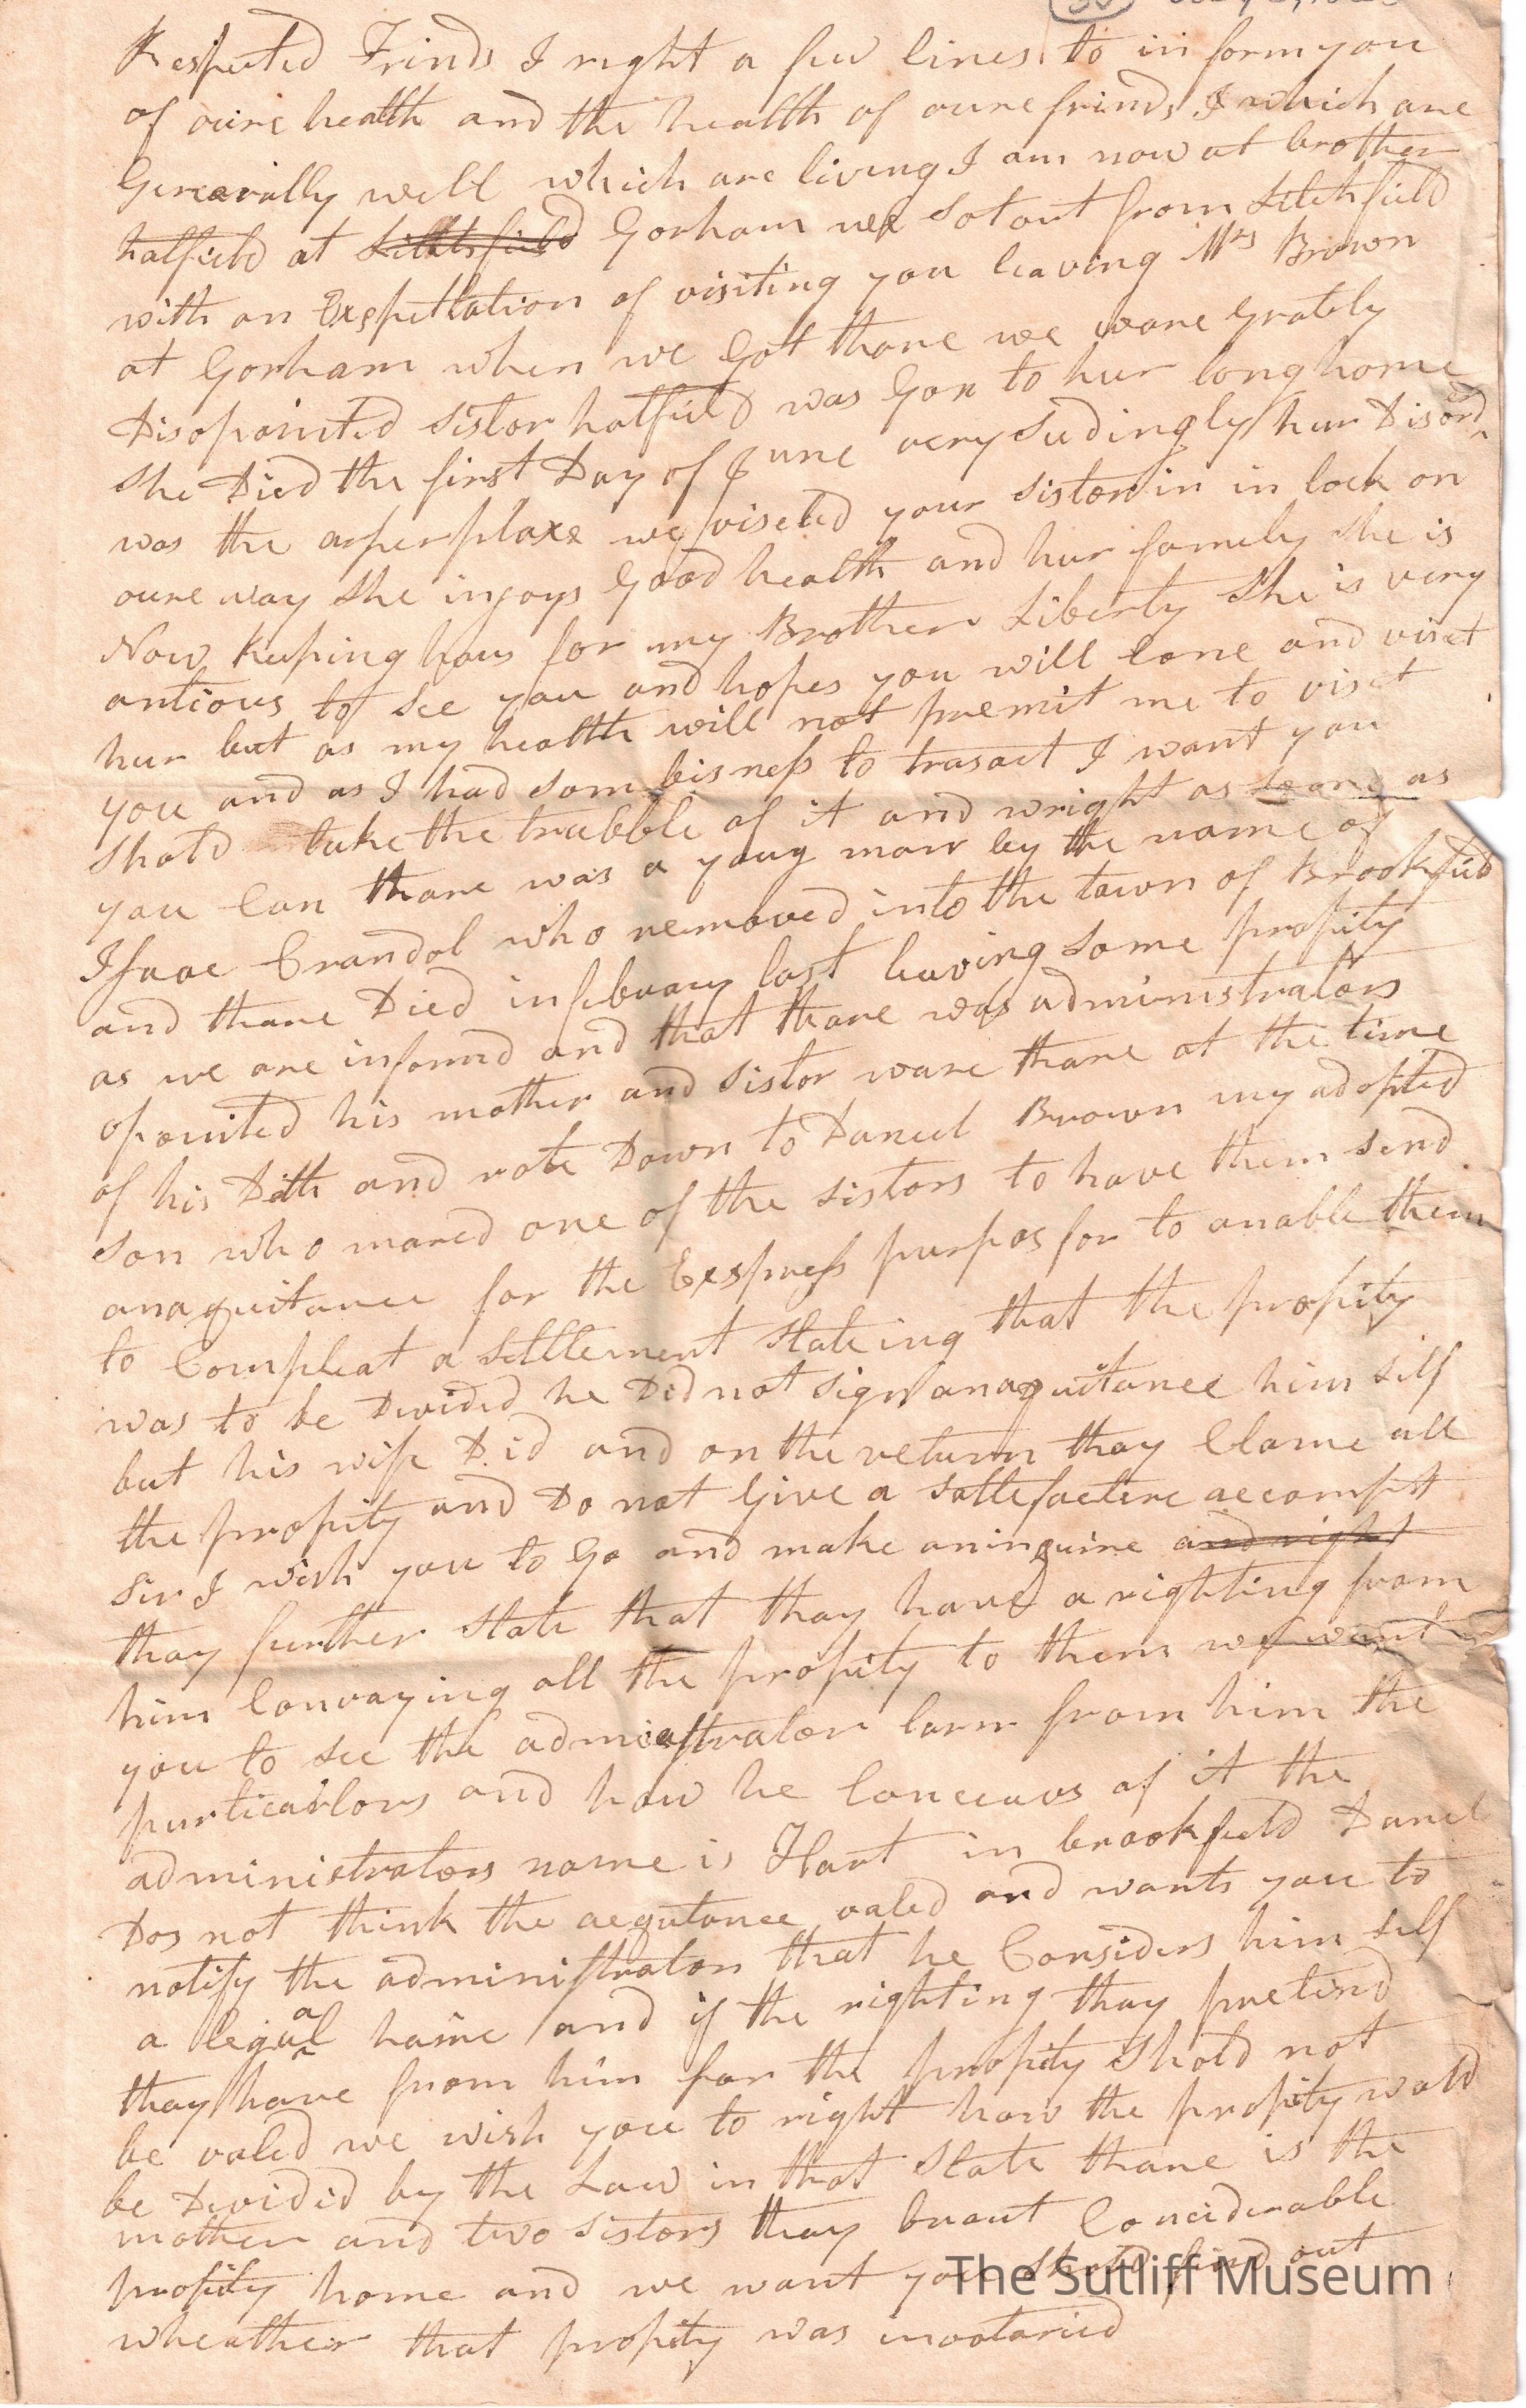 Respected Frinds I right a few lines to in form you
of oure health and the health of oure frinds I which are
Generally well which are living I am now at brother
hatfield at Litchfield Gorham we sot out from Litchfield
with an Expettation of visiting you leaving Mrs Brown
at Gorham when we Got thare we ware Grately
Disopointed sistor hatfield was Gon to hur long home
she Died the first Day of June very sudingly hur Disord
was the arperplaxe we viseted your sistor in in lock on
oure way she injoys Good health and hur famely she is
Now Keeping hous for my Brother Liberty she is very
antious to see you and hopes you will Come and viset
hur but as my health will not premit me to viset
you and as I had som bisness to trasact I want you
shold take the trubble of it and wright as soone as
you Can thare was a youg man by the name of
Isaac Crandol who removed into the town of Brookfield
and thare Died in febuary last leaving some propity
as we are informd and that thare was administrators
opointed his mother and sistor ware thare at the time
of his Deth and rote Down to Daneel Brown my adopted
son who mared one of the sistors to have them send
an aquitance for the Express purpos for to anable them
to Compleat a settlement stateing that the propity
was to be Devided he Did not sign an aquitance him self
but his wife Did and on the return thay Clame all
the propity and Do not Give a sattefactere accompt
Sir I wish you to Go and make an inquire and right
thay further state that thay have a righting from
him Convaying all the propity to them we want
you to see the administrator larn from him the
particurlors and how he Conceaves of it the
administrators name is Hart in brookfield Danel
Dos not think the aequtance valed and wants you to
notify the administrator that he Considers him self
a legal haire and if the righting thay pretend
thay have from him for the propity shold not
be valed we wish you to right how the propity wold
be Devided by the Law in that State thare is the
mother and two sistors thay braut Conciderable
propity home and we want you shold find out
wheather that propity was invotaried
The Sutliff Museum